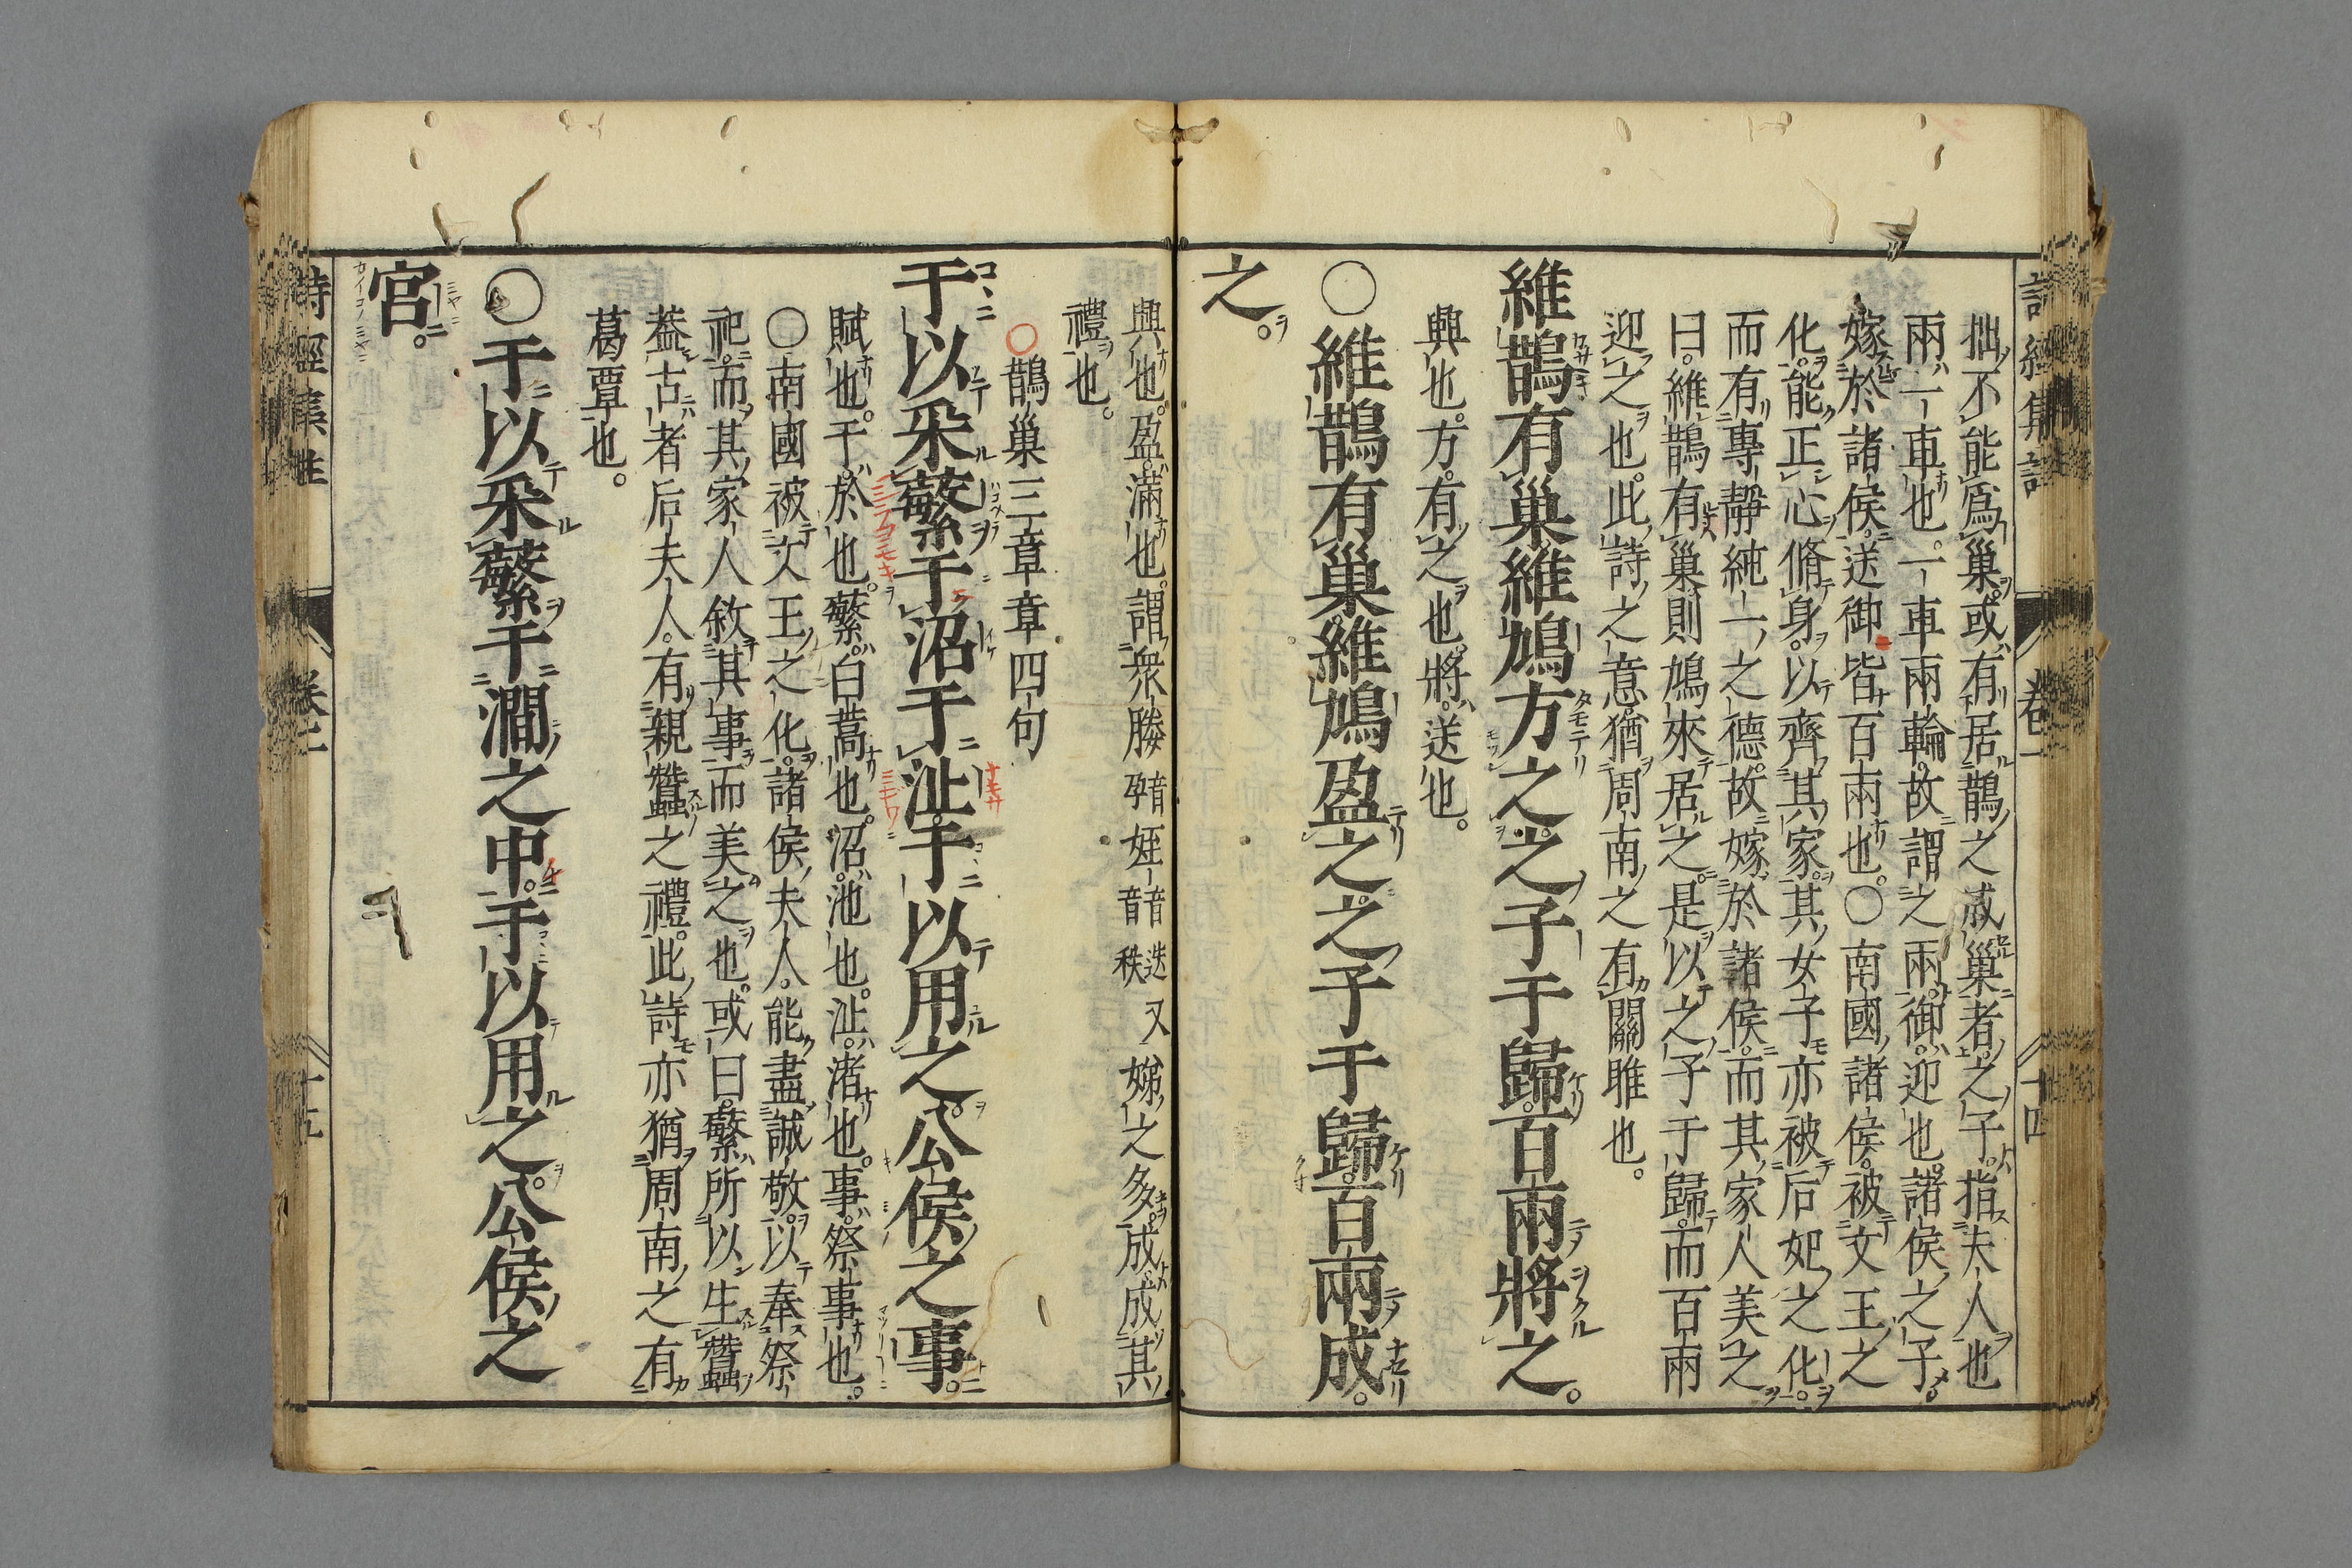 拙不能爲巢或有居鵲之成巢者之子指夫人也
兩一車也一車兩輪故謂之兩御迎也諸侯之子
嫁於諸侯送御皆百兩也○南國諸侯被文王之
化能正心脩身以齊其家其女子亦被后妃之化
而有專靜純一之德故嫁於諸侯而其家人美之
曰維鵲有巢則鳩來居之是以之子于歸而百兩
迎之也此詩之意猶周南之有關雎也。
維鵲有巢維鳩方之之子于歸百兩將之。
興也。方。有之也。將送也。
○維鵲有巢維鳩盈之之子于歸百兩成。
之。
興也。盈滿也。謂衆媵音孕姪音迭音秩又娣之多成成其
禮也。
○鵲巢三章章四句
于以采蘩于沼于沚于以用之公侯之事。
賦也。于於也。蘩白蒿也。沼池也。沚渚也。事祭事也。
○南國被文王之化諸侯夫人能盡誠敬以奉祭
祀而其家人敘其事而美之也。或曰蘩所以生蠶
葢古者后夫人有親蠶之禮此詩亦猶周南之有
葛覃也。
○于以采蘩于澗之中。于以用之公侯之
宮。